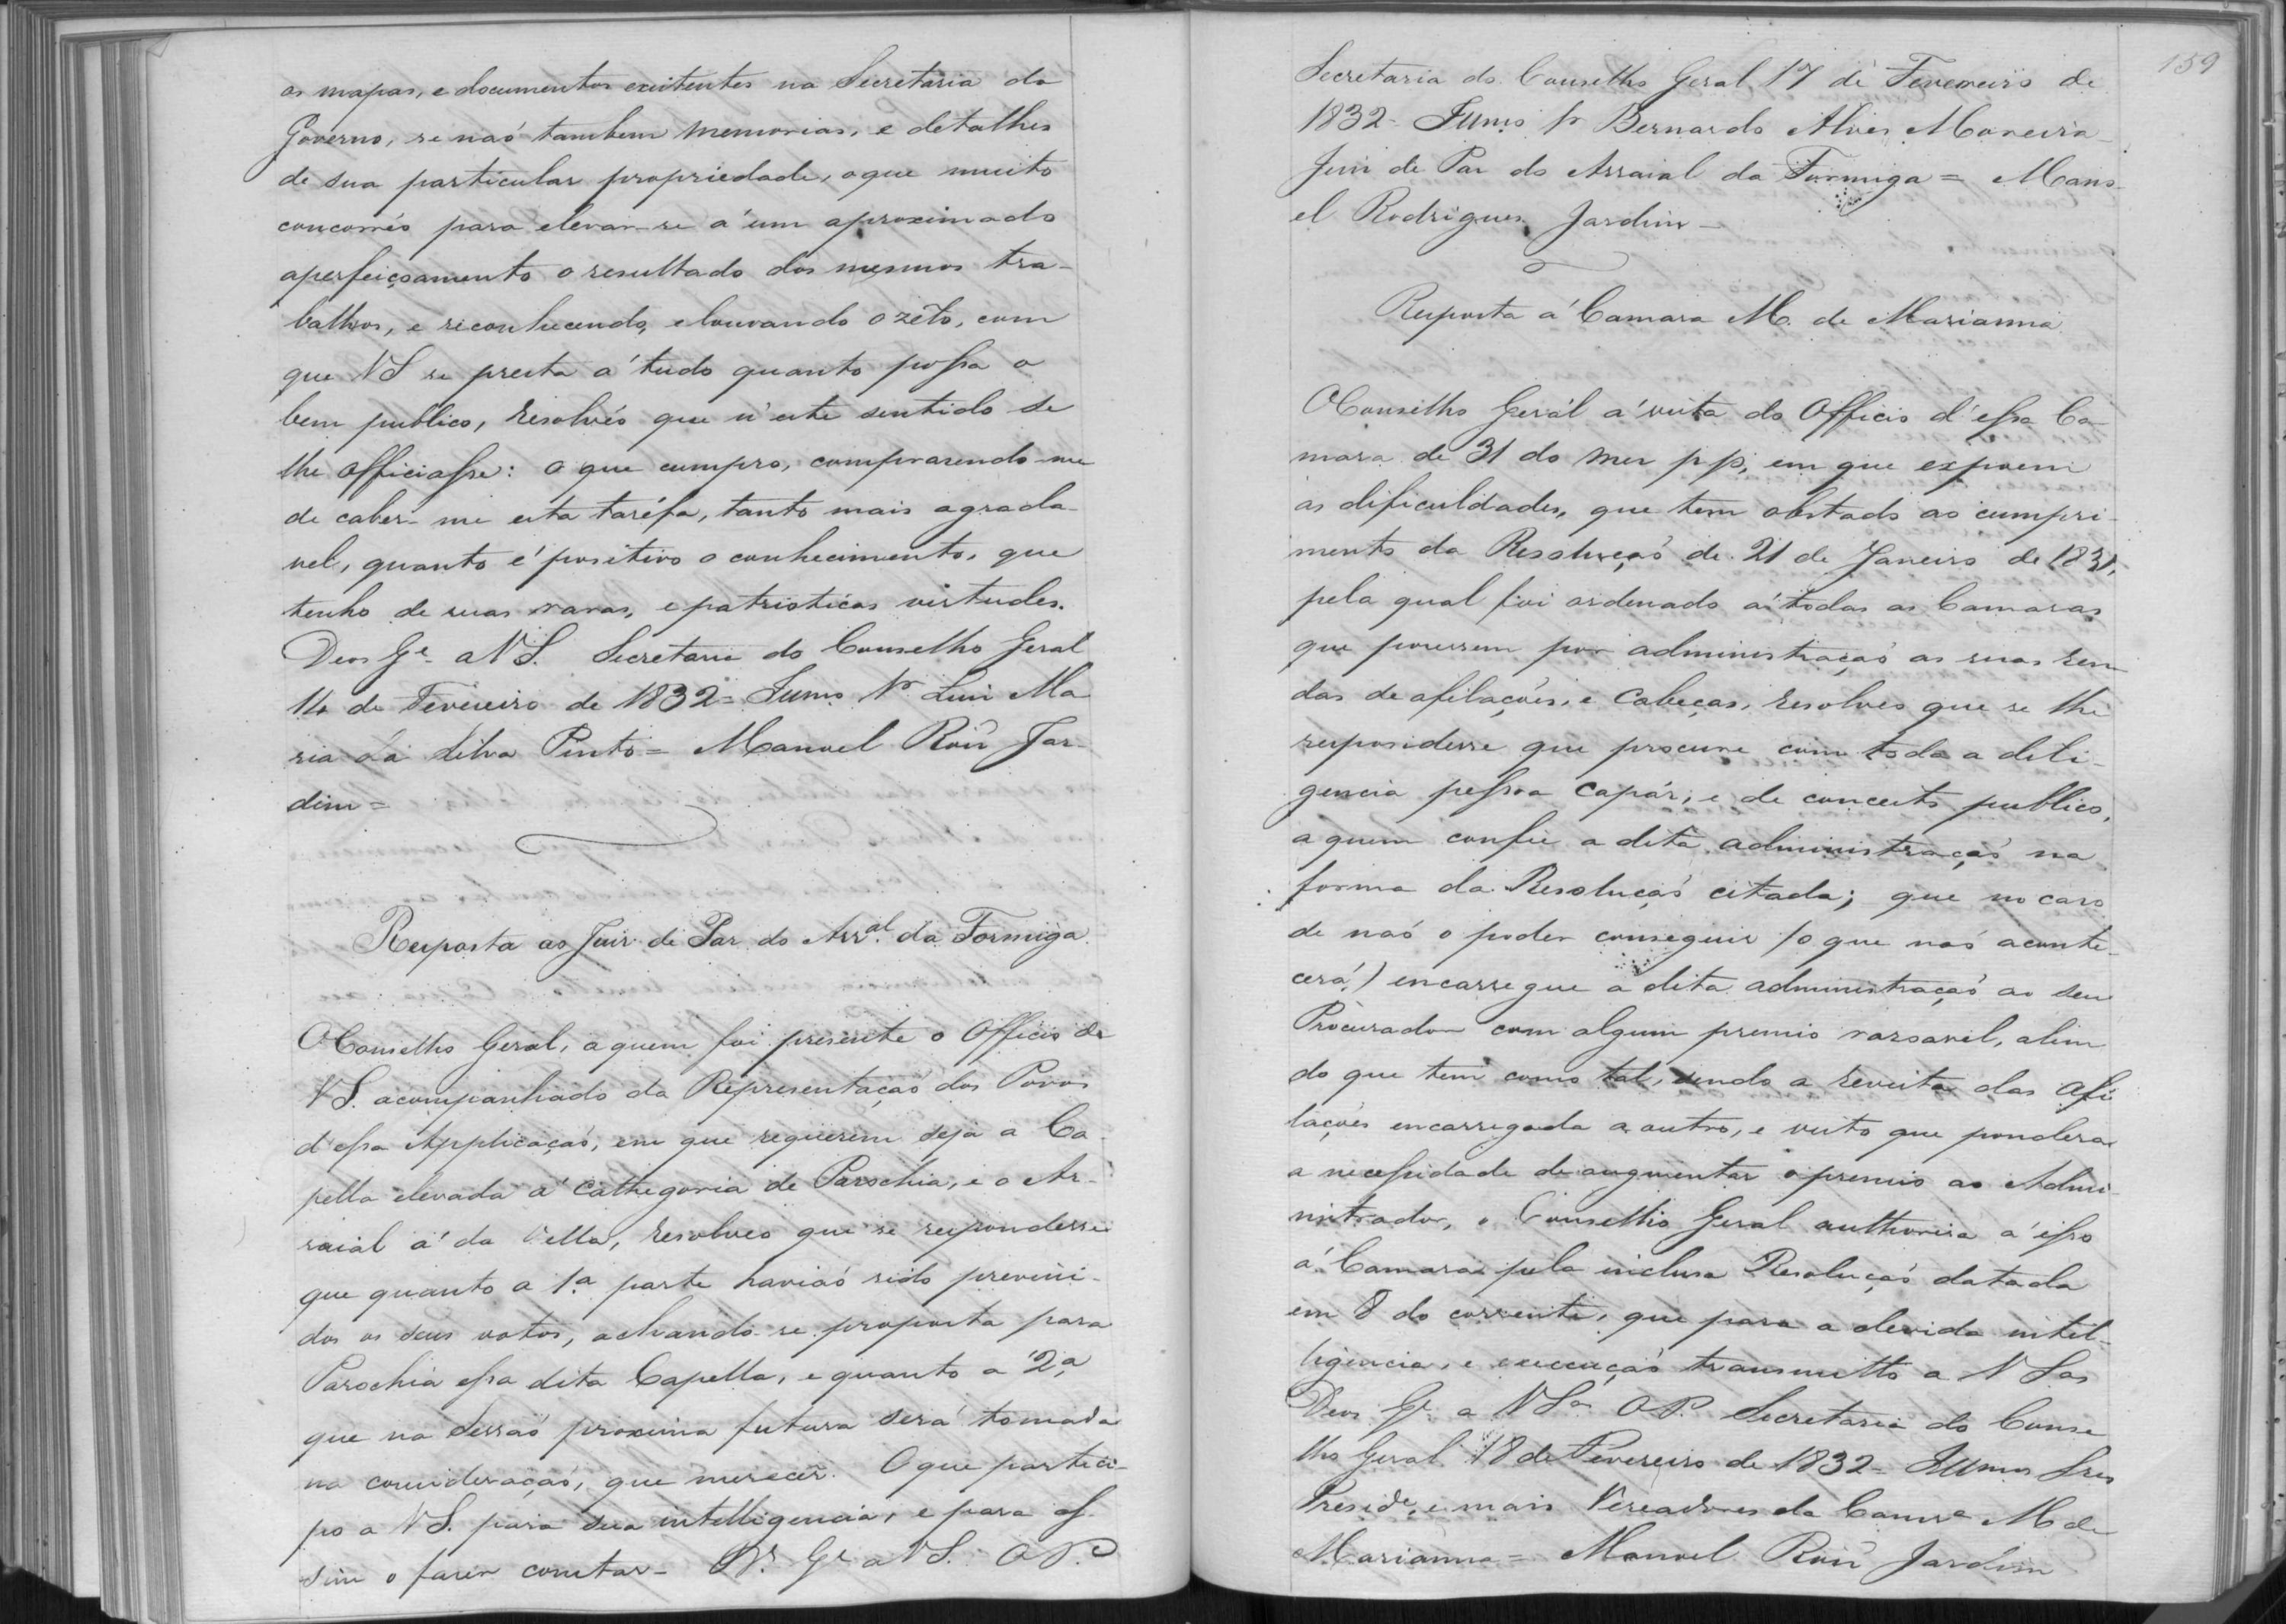 os mapas, e documentos existentes na Secretaria do
Governo, se naó tambem memorias, e detalhes
de sua particular propriedade, oque muito
concorréo para elevar-se á um aproximado
aperfeiçoamento o resultado dos mesmos tra-
balhos, e reconhecendo, elouvando o zêlo, com
que VS se presta á tudo quanto possa o
bem publico, resolvéo que n'este sentido se
lhe officiasse: o que cumpro, comprazendo-me
de caber-me esta taréfa, tanto mais agrada-
vel, quanto é positivo o conhecimento, que
tenho de suas raras, e patrioticas virtudes.
Deos Ge. a VS. Secretaria do Conselho Geral
14 de Fevereiro de 1832 = Illmo. Sr. Luis Ma
ria da Silva Pinto = Manoel Roiz Jar-
dim =
Resposta ao Juiz de Paz do Arral. da Formiga.
O Conselho Geral, a quem foi presente o Officio de
VS. acompanhado da Representaçaó dos Povos
d'essa Applicaçaó, em que requerem seja a Ca-
pella elevada á Cathegoria de Parochia, e o Ar-
raial á da Villa, resolveo que se respondesse
que quanto a 1ª parte haviaó sido preveni-
dos os seus votos, achando-se proposta para
Parochia essa dita Capella, e quanto a 2ª,
que na Sessaó proxima futura será tomada
na consideraçaó, que merecer. Oque partici-
po a VS. para sua intelligencia, e para as-
sim o fazer constar - Ds. Ge a VS. OP.
159
Secretaria do Conselho Geral 17 de Fevereiro de
1832 - Illmo. Sr Bernardo Alves Moreira
Juiz de Paz do Arraial da Formiga = Mano-
el Rodrigues Jardim -
Resposta á Camara M. de Marianna
O Conselho Gerál á vista do Officio d'essa Ca-
mara de 31 do mez p p, em que expoem
as dificuldades, que tem obstado ao cumpri-
mento da Resoluçaó de 21 de Janeiro de 1831,
pela qual foi ordenado á todas as Camaras
que pozessem por administraçaó as suas ren
das de afilações, e Cabeças, resolveo que se lhe
respondesse que procure com toda a dili-
gencia pessoa capáz, e de conceito publico,
a quem confie a dita administraçaó na
forma da Resoluçaó citada; que no caso
de naó o poder conseguir (o que naó aconte-
cerá) encarregue a dita administraçaó ao seu
Procurador com algum premio razoavel, alem
do que tem como tal, sendo a revista das afi
lações encarregada a outro, e visto que pondera
a necessidade de augmentar o premio ao Admi-
nistrador, o Conselho Geral authorisa á isso
á Camara pela inclusa Resoluçaó datada
em 8 do corrente, que para a devida intel-
ligencia, e execuçaó transmitto a VSas
Deos Ge. a VSas OP. Secretaria do Conse
lho Geral 18 de Fevereiro de 1832 = Illmos Sres
Preside. e mais Vereadores da Camra M de
Marianna = Manoel Roiz Jardim